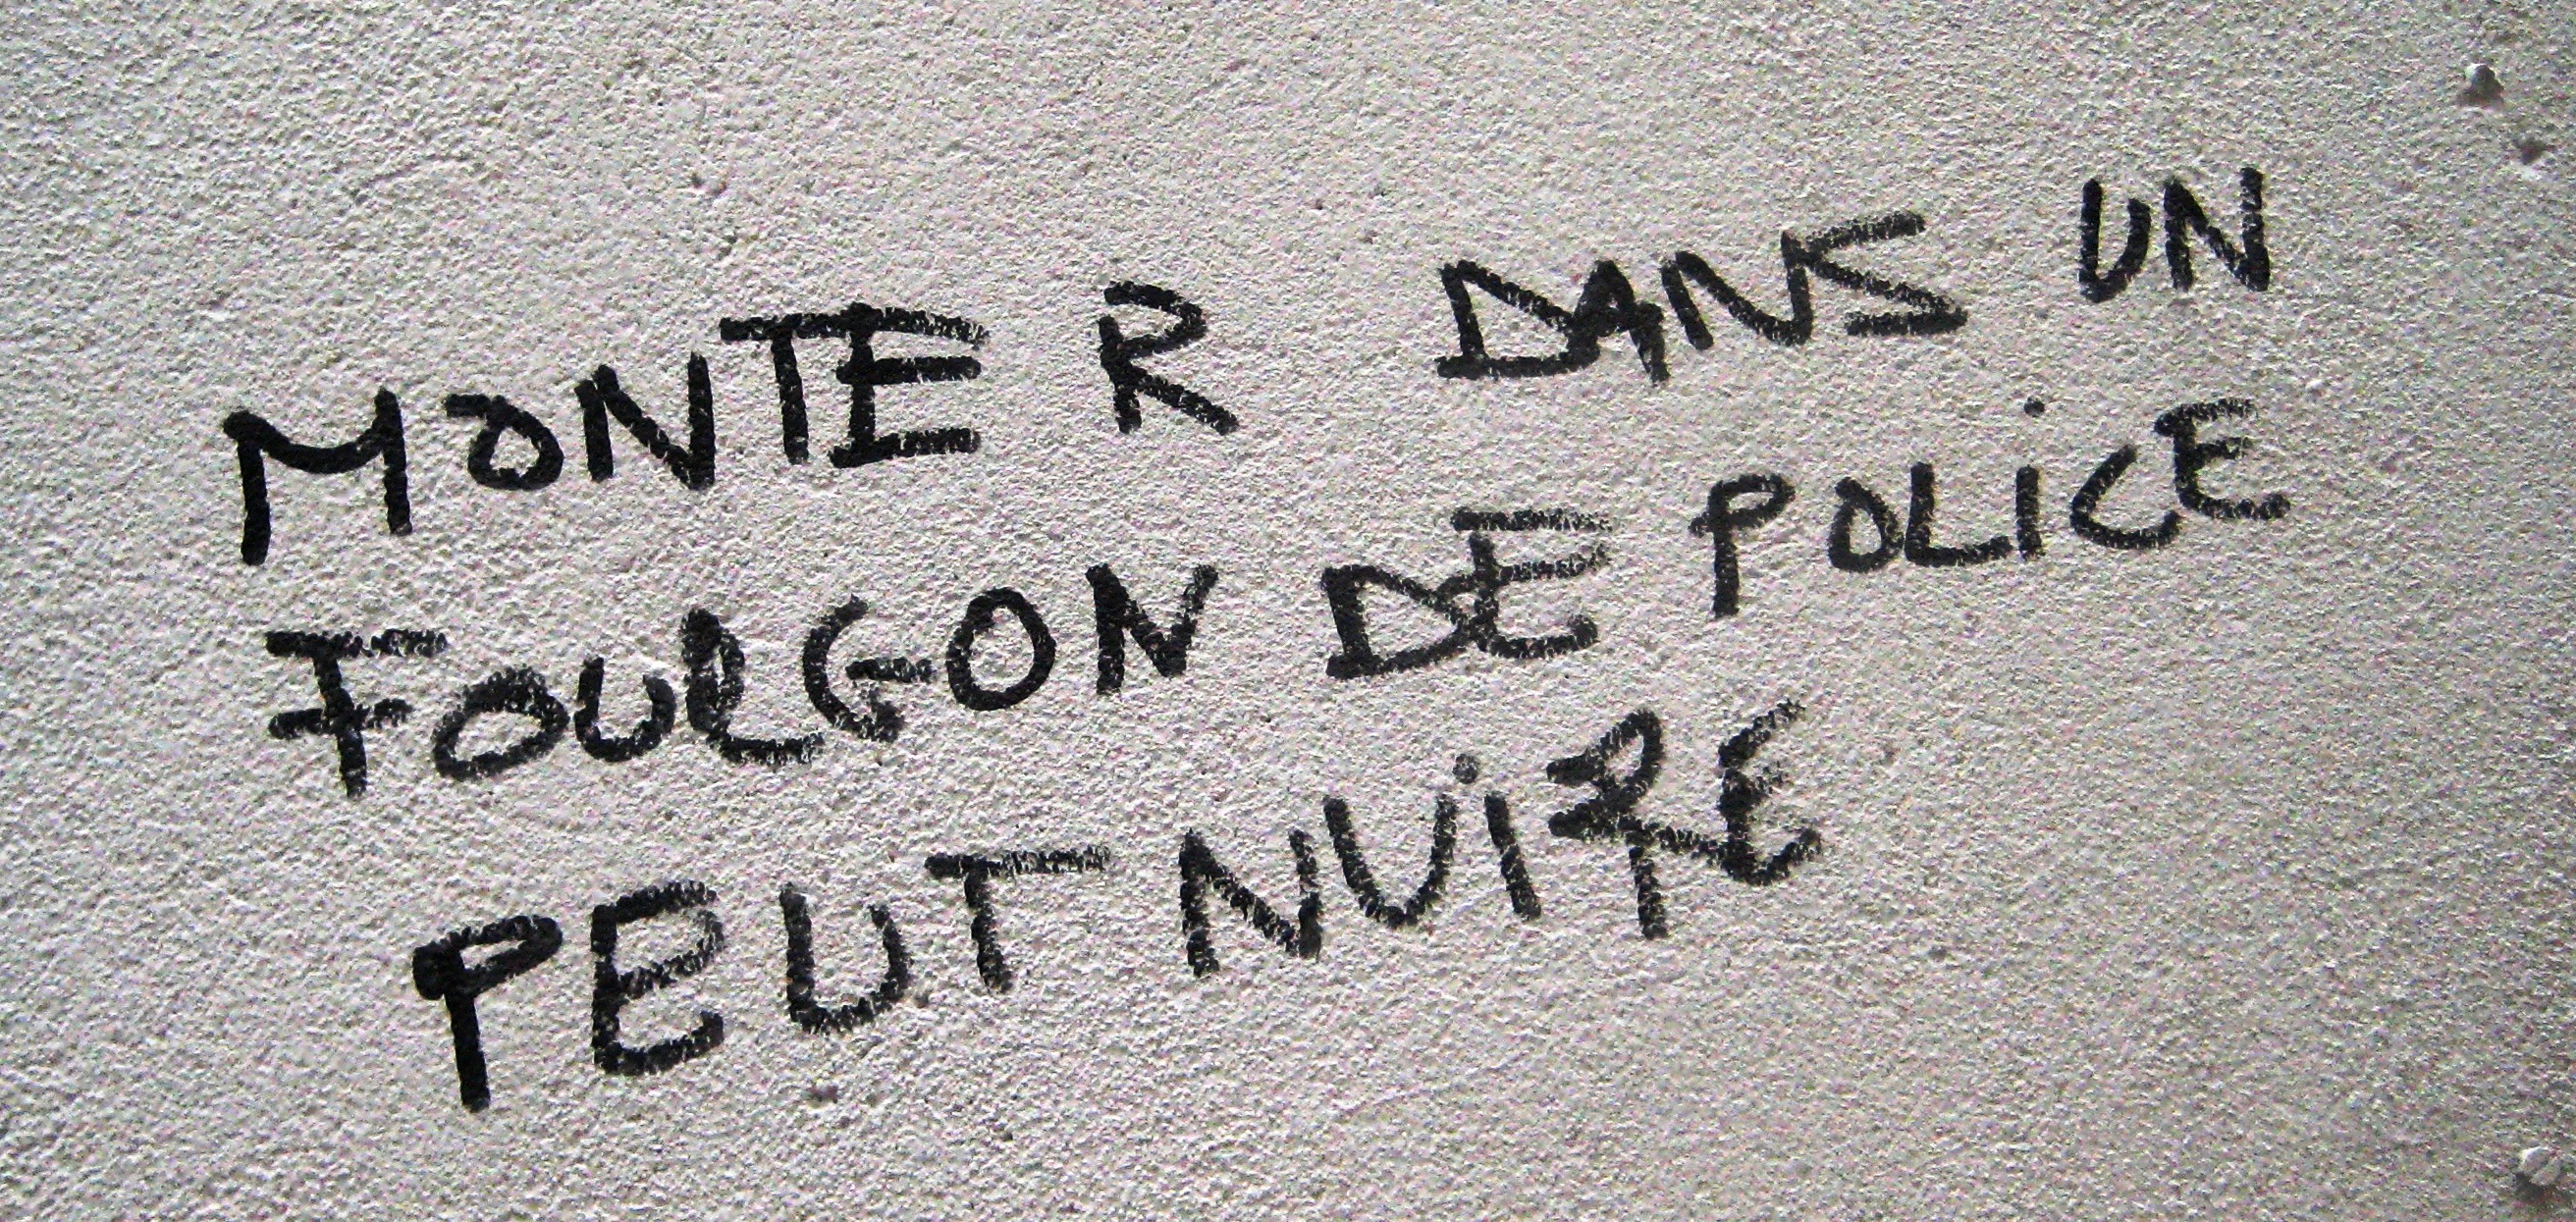 MONTER DANS UN
FOURGON DE POLICE
PEUT NUIRE